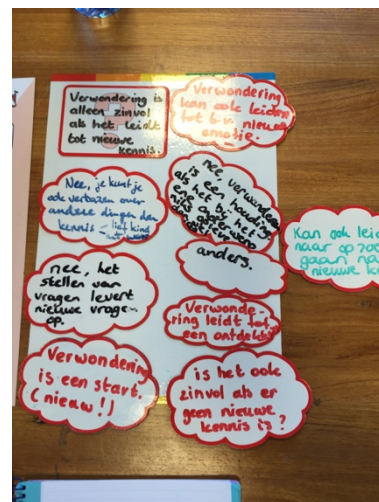 Verwondering is
alleen zinvol
als het leidt
tot nieuwe
kennis.
Verwondering
kan ook leiden
tot b.v. nieuwe
emotie.
Nee, je kunt je
ook verbazen over
andere dingen dan
kennis
nee, verwondering
is een houding
als het bij het
niks
anders.
nee, het
stellen van
vragen levert
nieuwe vragen
op.
Verwonde-
ring leidt tot
een ontdekk
Kan ook leid
naar op zoe
gaan na
nieuwe k
Verwondering
is een start.
(nieuw!)
is het ook
zinvol als er
geen nieuwe
kennis is?